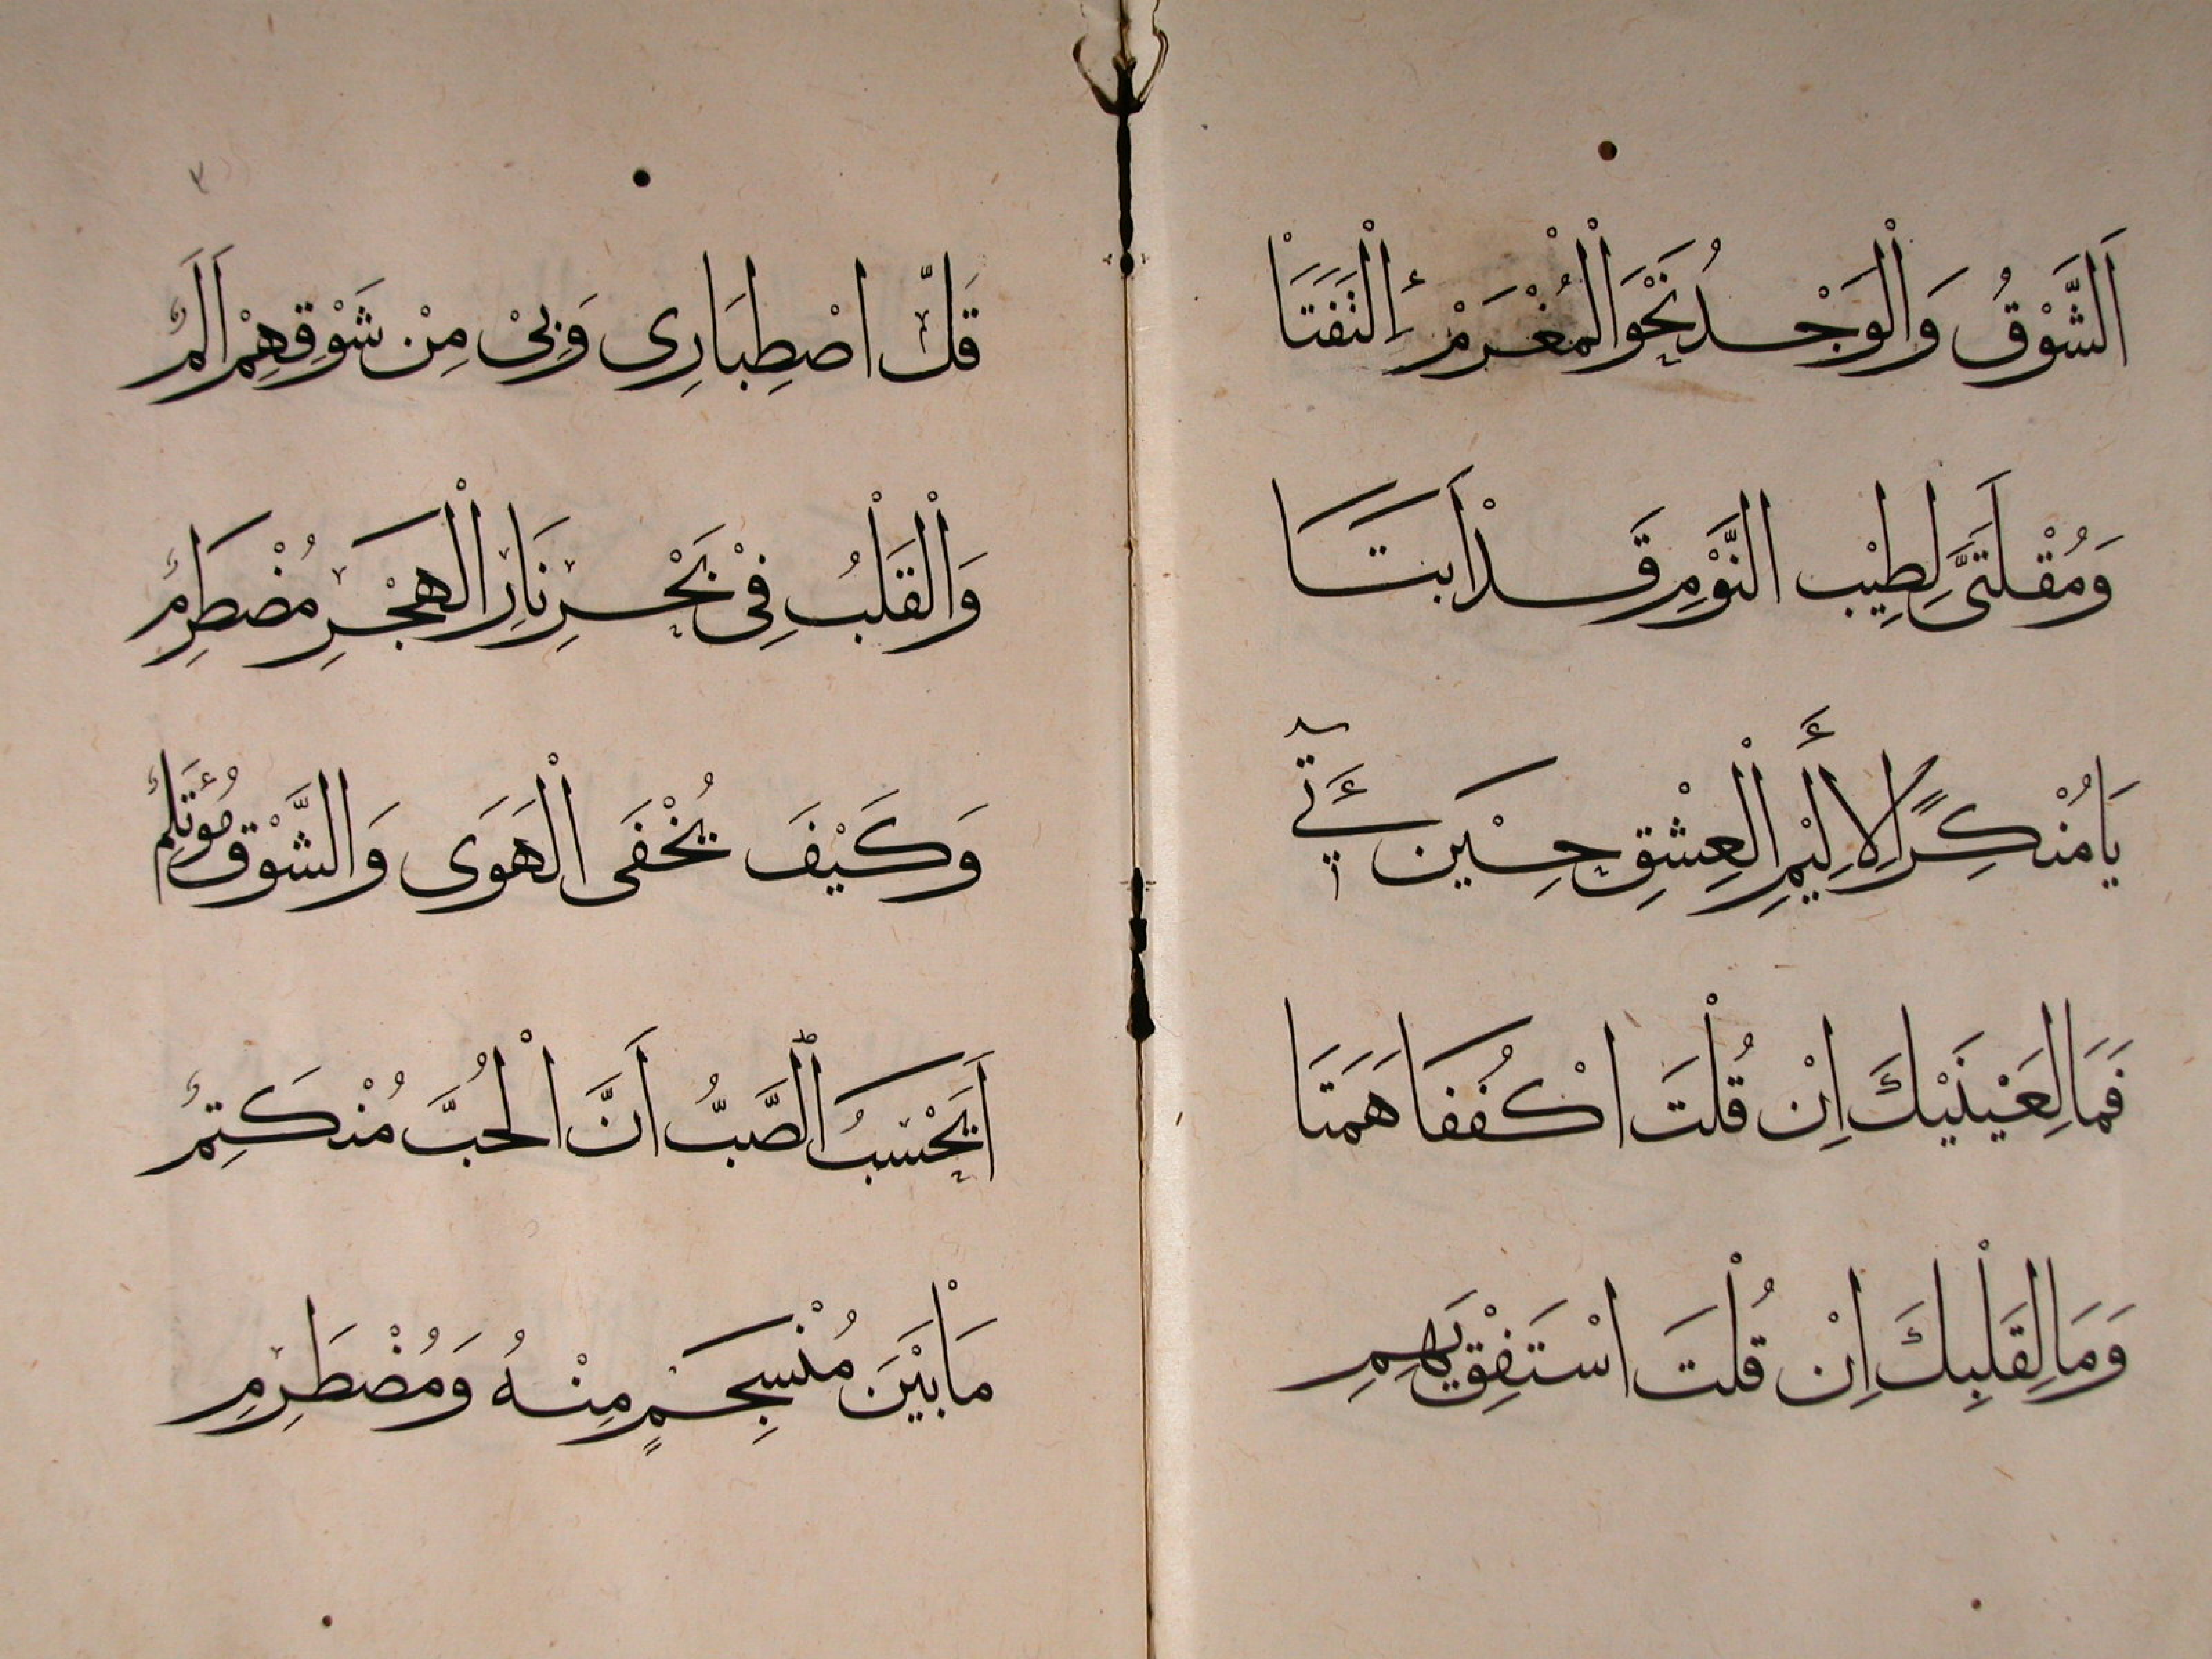 اَلشَّوْقُ وَالْوَجْدُ نَحْوَ الْمُغْرَمْ اِلْتَفَتَا
وَمُقْلَتَىَّ لِطِيْبِ النَّوْمِ قَدْ اَبَتَا
يَا مُنْكِرًا لِاَلِيْمِ الْعِشْقِ حِيْنَ
فَمَا لِعَيْنَيْكَ اِنْ قُلْتَ اكْفُفَا هَمَتَا
وَمَا لِقَلْبِكَ اِنْ قُلْتَ اسْتَفِقْ يَهِمِ
قَلَّ اصْطِبَارِى وَبِىْ مِنْ شَوْقِهِمْ اَلَمٌ
وَالْقَلْبُ فِىْ بَحْرِ نَارِ الْهَجْرِ مُضْطَرِمٌ
وَكَيْفَ يُخْفَى الْهَوَى وَالشَّوْقُ
اَيَحْسَبُ الصَّبُّ اَنَّ الْحُبَّ مُنْكَتِمٌ
مَا بَيْنَ مُنْسَجِمٍ مِنْهُ وَمُضْطَرِمِ